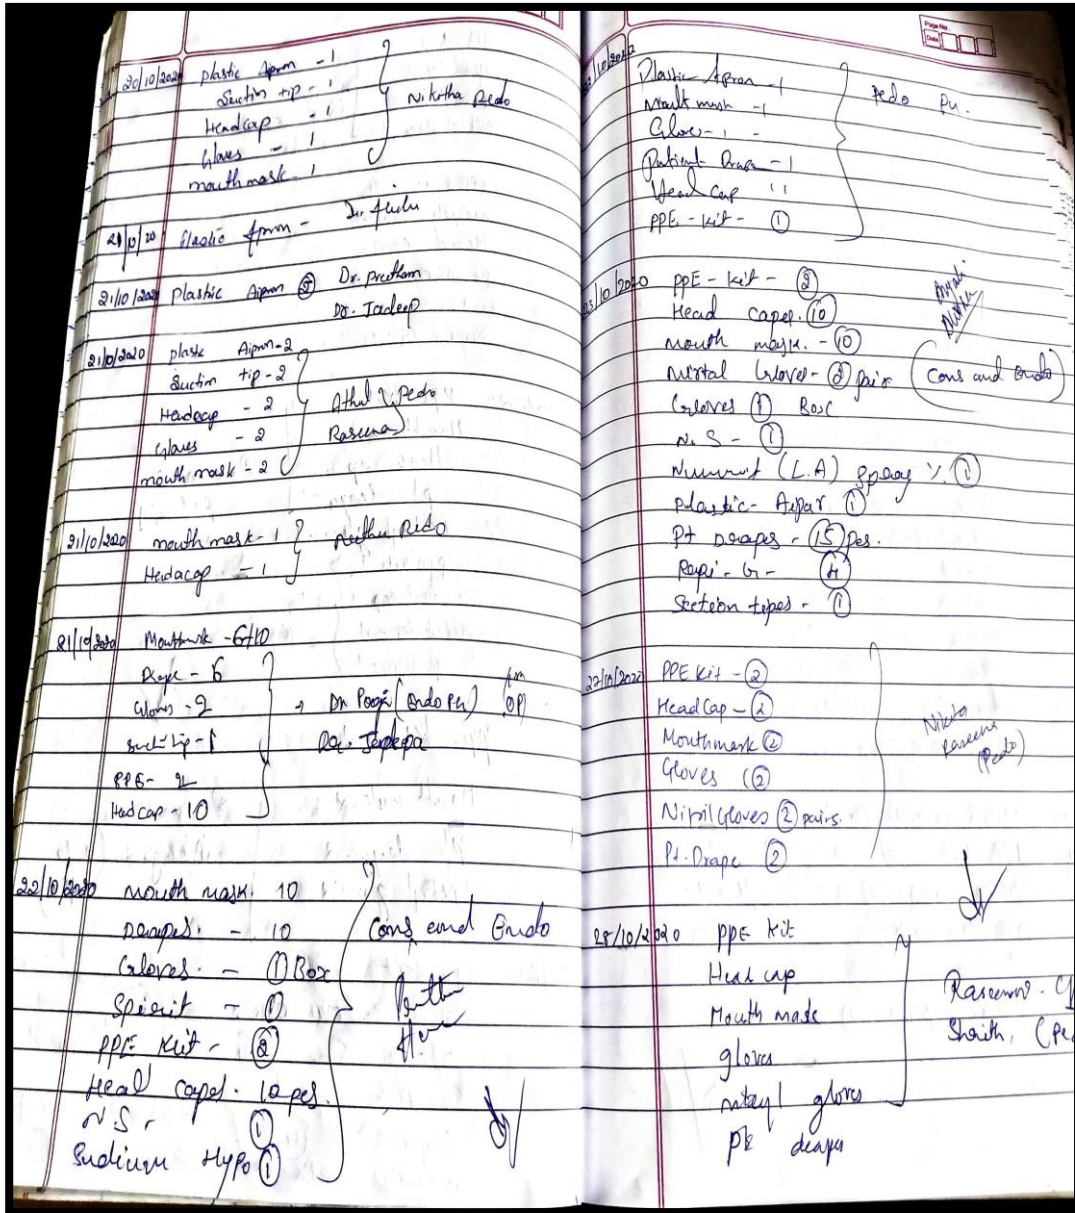 20/10/2020 Plastic Apron - 1
Suction tip - 1
Headcap - 1
Gloves - 1
mouth mask - 1
Nikitha Pedo
21/10/20 Plastic Apron -
21/10/2020 Plastic Aipron 2 Dr. Preetham
Dr. Jadeep
21/10/2020 plastic Aipron - 2
Suction tip - 2
Headcap - 2
Gloves - 2
mouth mask - 2
Athul Pedo
Raseena
21/10/2020 mouth mask - 1
Hedacap - 1
21/10/2020 Mouthmask - 6+10
Drape - 6
Gloves - 2
Suct tip - 1
PPE - 2
Headcap - 10
→ Dr Pooja (Endo
OP)
22/10/2020 mouth mask 10
Drapes. - 10
Gloves. - 1 Box
Spirit - 1
PPE Kit - 2
Head capes. 10 pes.
N.S. 1
Sudium Hypo 1
Cons and Endo
Page No.
Date
Plastic Apron - 1
Mouth mask - 1
Gloves - 1
Patient Drape - 1
Head cap "1
PPE - Kit - 1
Pedo
23/10/2020 PPE - Kit - 2
Head capes. 10
Mouth mask. - 10
Nirtal Gloves - 2 pair
Gloves 1 Box
N.S - 1
(L.A) Spray % 1
Plastic - 1
Pt Drapes - 15 Pes.
Rapi - G - 4
Section tipes - 1
(Cons and Endo)
27/10/2020 PPE Kit - 2
Head Cap - 2
Mouthmask 2
Gloves (2
Nitril Gloves 2 pairs.
Pt. Drape 2
Raseena
(Pedo)
28/10/2020 PPE Kit
Head cap
Mouth mask
gloves
gloves